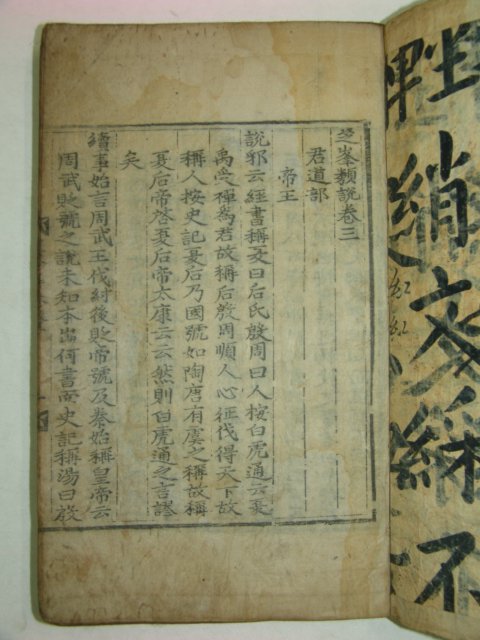 芝峯類說卷三
君道部
帝王
說郛云經書稱夏曰后氏殷周曰人按白虎通云夏
禹受禪爲君故稱后殷周順人心征伐得天下故
稱人按史記夏后乃國號如陶唐有虞之稱故稱
夏后帝啓夏后帝太康云云然則白虎通之言謬
矣
續事始言周武王伐紂後貶帝號及秦始稱皇帝云
周武貶號之說未知本出何書而史記稱湯曰放